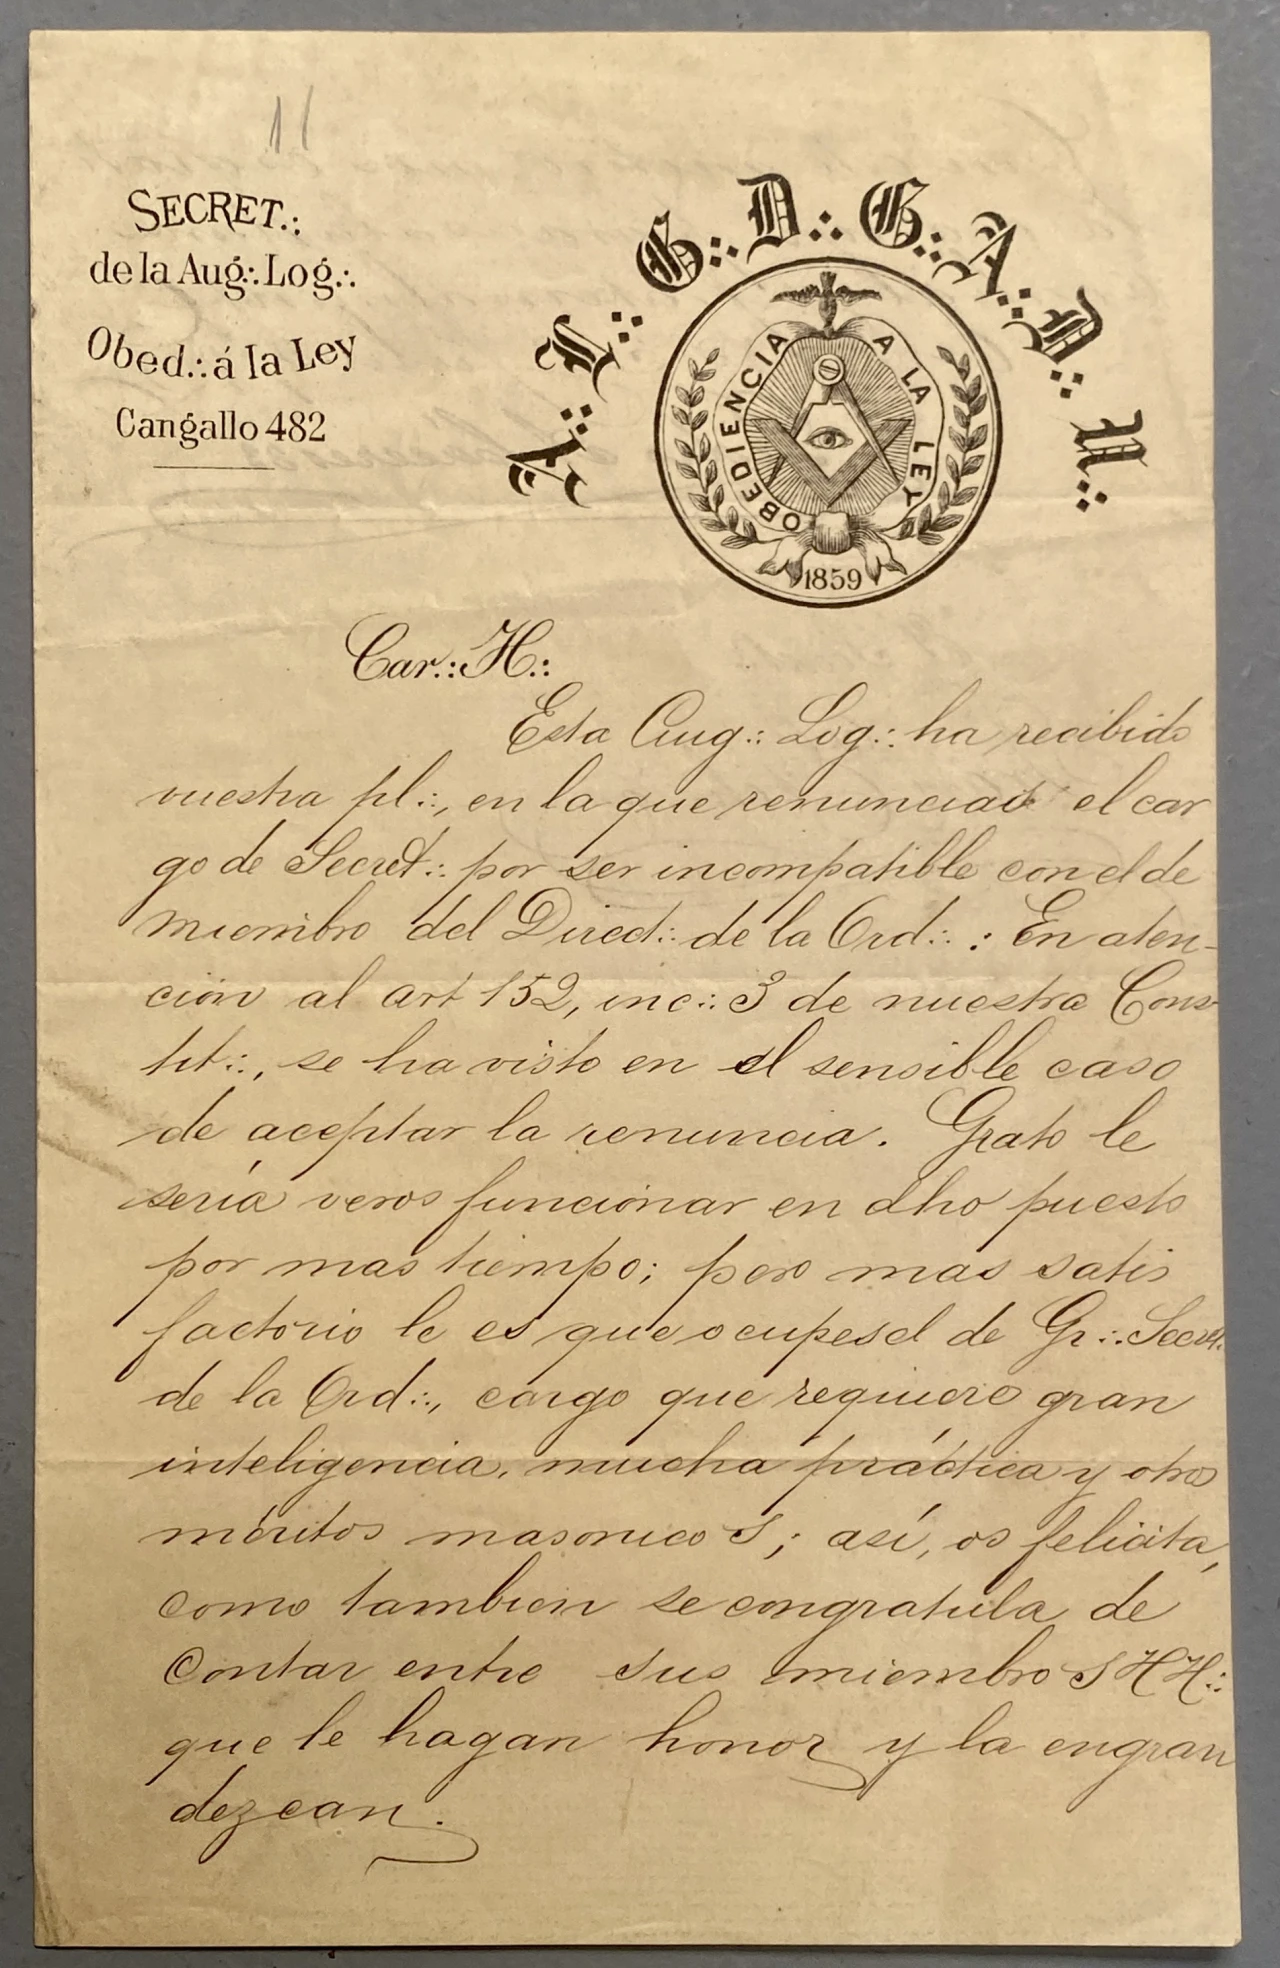 11
SECRET.:
de la Aug.·. Log.·.
Obed.: á la Ley
Cangallo 482
A.·. L.·. G.·. D.·. G.·. A.·. D.·. U.·.
OBEDIENCIA A LA LEY
1859
Car.: H.:
Esta Aug.: Log.: ha recibido
vuestra pl.:, en la que renunciais el car
go de Secret.: por ser incompatible con el de
miembro del Direct.: de la Ord.: : En aten-
ción al art 152, inc.: 3 de nuestra Cons-
tit.:, se ha visto en el sensible caso
de aceptar la renuncia. Grato le
sería veros funcionar en dho puesto
por mas tiempo; pero mas satis
factorio le es que ocupes el de Gr.: Secret.
de la Ord.:, cargo que requiere gran
inteligencia, mucha práctica y otros
méritos masonicos; así, os felicita,
como tambien se congratula de
contar entre sus miembros HH.:
que le hagan honor y la engran
dezcan.